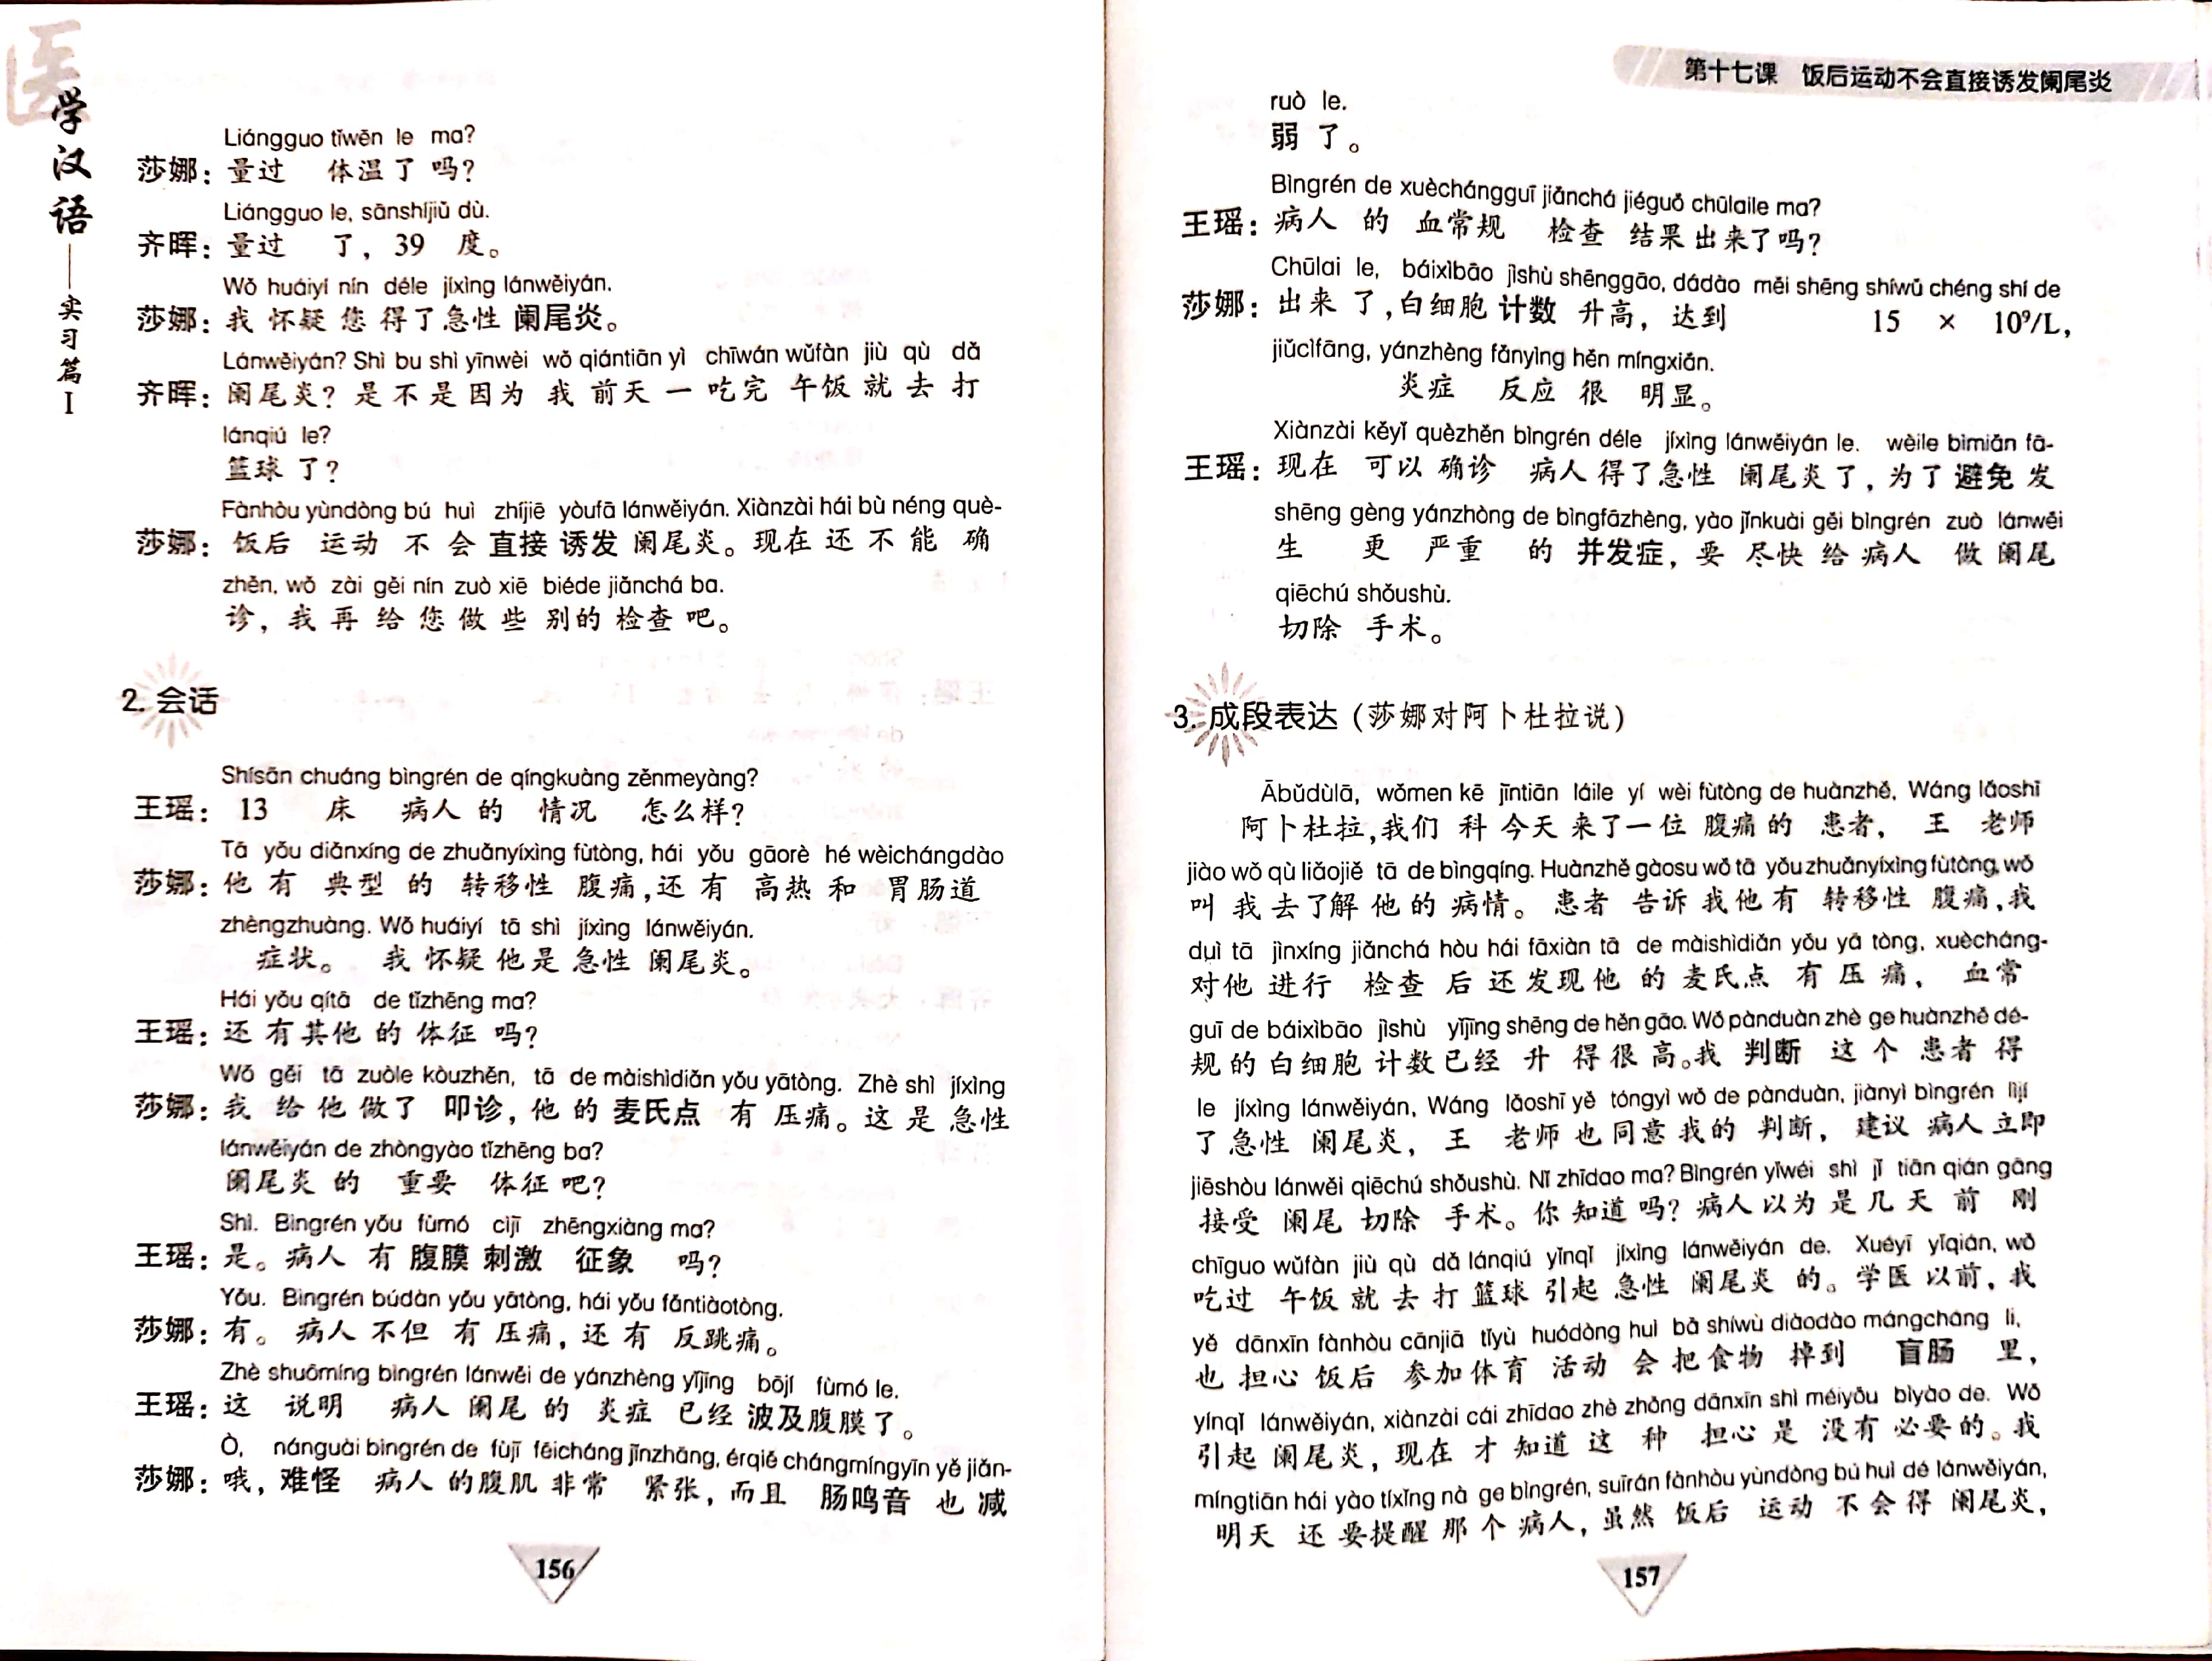 医学汉语——实习篇 I
Liángguo tǐwēn le ma?
莎娜：量过 体温了吗？
Liángguo le, sānshíjiǔ dù.
齐晖：量过 了，39 度。
Wǒ huáiyí nín déle jíxìng lánwěiyán.
莎娜：我怀疑您得了急性阑尾炎。
Lánwěiyán? Shì bu shì yīnwèi wǒ qiántiān yì chīwán wǔfàn jiù qù dǎ
齐晖：阑尾炎？是不是因为 我 前天 一 吃完 午饭 就 去 打
lánqiú le?
篮球 了？
Fànhòu yùndòng bú huì zhíjiē yòufā lánwěiyán. Xiànzài hái bù néng què-
莎娜：饭后 运动 不 会 直接 诱发 阑尾炎。现在 还 不 能 确
zhěn, wǒ zài gěi nín zuò xiē biéde jiǎnchá ba.
诊，我 再 给 您 做 些 别的 检查 吧。
2. 会话
Shísān chuáng bìngrén de qíngkuàng zěnmeyàng?
王瑶：13 床 病人 的 情况 怎么样？
Tā yǒu diǎnxíng de zhuǎnyíxìng fùtòng, hái yǒu gāorè hé wèichángdào
莎娜：他 有 典型 的 转移性 腹痛，还 有 高热 和 胃肠道
zhèngzhuàng. Wǒ huáiyí tā shì jíxìng lánwěiyán.
症状。 我 怀疑 他 是 急性 阑尾炎。
Hái yǒu qítā de tǐzhēng ma?
王瑶：还 有 其他 的 体征 吗？
Wǒ gěi tā zuòle kòuzhěn, tā de màishìdiǎn yǒu yātòng. Zhè shì jíxìng
莎娜：我 给 他 做了 叩诊，他 的 麦氏点 有 压痛。这 是 急性
lánwěiyán de zhòngyào tǐzhēng ba?
阑尾炎 的 重要 体征 吧？
Shì. Bìngrén yǒu fùmó cìjī zhēngxiàng ma?
王瑶：是。病人 有 腹膜 刺激 征象 吗？
Yǒu. Bìngrén búdàn yǒu yātòng, hái yǒu fǎntiàotòng.
莎娜：有。病人 不但 有 压痛，还 有 反跳痛。
Zhè shuōmíng bìngrén lánwěi de yánzhèng yǐjīng bōjí fùmó le.
王瑶：这 说明 病人 阑尾 的 炎症 已经 波及腹膜了。
Ò, nánguài bìngrén de fùjī fēicháng jǐnzhāng, érqiě chángmíngyīn yě jiǎn-
莎娜：哦，难怪 病人 的 腹肌 非常 紧张，而且 肠鸣音 也 减
156
第十七课 饭后运动不会直接诱发阑尾炎
ruò le.
弱 了。
Bìngrén de xuèchángguī jiǎnchá jiéguǒ chūlaile ma?
王瑶：病人 的 血常规 检查 结果 出来了吗？
Chūlai le, báixìbāo jìshù shēnggāo, dádào měi shēng shíwǔ chéng shí de
莎娜：出来 了，白细胞 计数 升高，达到 15 × 10⁹/L，
jiǔcìfāng, yánzhèng fǎnyìng hěn míngxiǎn.
炎症 反应 很 明显。
Xiànzài kěyǐ quèzhěn bìngrén déle jíxìng lánwěiyán le. wèile bìmiǎn fā-
王瑶：现在 可以 确诊 病人 得了急性 阑尾炎 了，为了 避免 发
shēng gèng yánzhòng de bìngfāzhèng, yào jǐnkuài gěi bìngrén zuò lánwěi
生 更 严重 的 并发症，要 尽快 给 病人 做 阑尾
qiēchú shǒushù.
切除 手术。
3. 成段表达（莎娜对阿卜杜拉说）
Ābǔdùlā, wǒmen kē jīntiān láile yí wèi fùtòng de huànzhě, Wáng lǎoshī
阿卜杜拉，我们 科 今天 来了一位 腹痛的 患者， 王 老师
jiào wǒ qù liǎojiě tā de bìngqíng. Huànzhě gàosu wǒ tā yǒu zhuǎnyíxìng fùtòng, wǒ
叫 我 去了解 他的 病情。患者 告诉 我他有 转移性 腹痛，我
duì tā jìnxíng jiǎnchá hòu hái fāxiàn tā de màishìdiǎn yǒu yā tòng, xuècháng-
对他 进行 检查 后 还 发现 他 的 麦氏点 有 压 痛， 血常
guī de báixìbāo jìshù yǐjīng shēng de hěn gāo. Wǒ pànduàn zhè ge huànzhě dé-
规 的 白细胞 计数已经 升 得很高。我 判断 这个 患者 得
le jíxìng lánwěiyán, Wáng lǎoshī yě tóngyì wǒ de pànduàn, jiànyì bìngrén lìjí
了急性 阑尾炎， 王 老师 也 同意 我的 判断， 建议 病人 立即
jiēshòu lánwěi qiēchú shǒushù. Nǐ zhīdao ma? Bìngrén yǐwéi shì jǐ tiān qián gāng
接受 阑尾 切除 手术。你 知道 吗？病人 以为 是 几 天 前 刚
chīguo wǔfàn jiù qù dǎ lánqiú yǐnqǐ jíxìng lánwěiyán de. Xuéyī yǐqián, wǒ
吃过 午饭 就 去 打 篮球 引起 急性 阑尾炎 的。学医 以前，我
yě dānxīn fànhòu cānjiā tǐyù huódòng huì bǎ shíwù diàodào mángcháng li,
也 担心 饭后 参加体育 活动 会 把食物 掉到 盲肠 里，
yǐnqǐ lánwěiyán, xiànzài cái zhīdao zhè zhǒng dānxīn shì méiyǒu bìyào de. Wǒ
引起 阑尾炎，现在 才 知道 这 种 担心 是 没有 必要 的。我
míngtiān hái yào tíxǐng nà ge bìngrén, suīrán fànhòu yùndòng bú huì dé lánwěiyán,
明天 还 要提醒 那 个 病人，虽然 饭后 运动 不 会 得 阑尾炎，
157